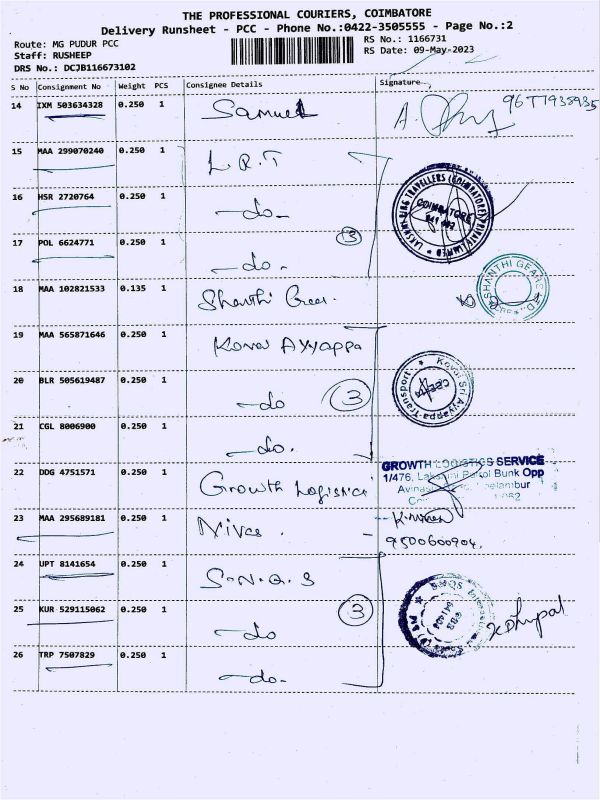 THE PROFESSIONAL COURIERS, COIMBATORE
Delivery Runsheet - PCC - Phone No.:0422-3505555 - Page No.:2
Route: MG PUDUR PCC
RS No.: 1166731
Staff: RUSHEEP
RS Date: 09-May-2023
DRS No.: DCJB116673102
S No Consignment No Weight PCS Consignee Details Signature
14 IXM 503634328 0.250 1 Samuel
15 MAA 299070240 0.250 1 L.R.T
LAKSHMI RING TRAVELLERS (COIMBATORE) PRIVATE LIMITED
COIMBATORE
641
16 HSR 2720764 0.250 1 -do-
17 POL 6624771 0.250 1 -do-
3
18 MAA 102821533 0.135 1 Shanthi Gears.
SHANTHI GEARS LTD
19 MAA 565871646 0.250 1 Kovai Ayyappa
Kovai Sri Ayyappa Transport
20 BLR 505619487 0.250 1 -do
3
21 CGL 8006900 0.250 1 -do.
22 DDG 4751571 0.250 1 Growth Logistics
GROWTH LOGISTICS SERVICE
1/476, Lakshmi Petrol Bunk Opp
23 MAA 295689181 0.250 1 Nives.
9500600904.
24 UPT 8141654 0.250 1 S.N.Q.S
SNQS
25 KUR 529115062 0.250 1 -do
3
26 TRP 7507829 0.250 1 -do-